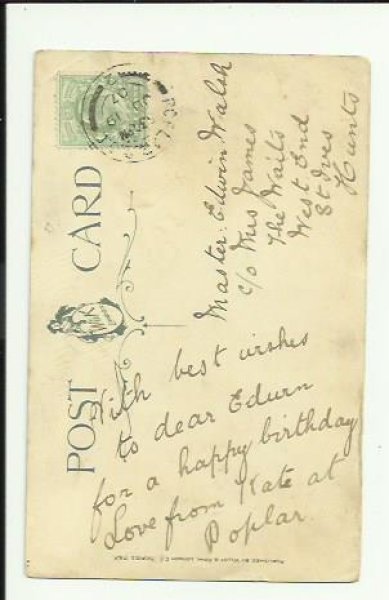 POST CARD
With best wishes
to dear Edwin
for a happy birthday
Love from Kate at
Poplar.
Master. Edwin Walsh
c/o Mrs James
The Waits
West End
St Ives
Hunts